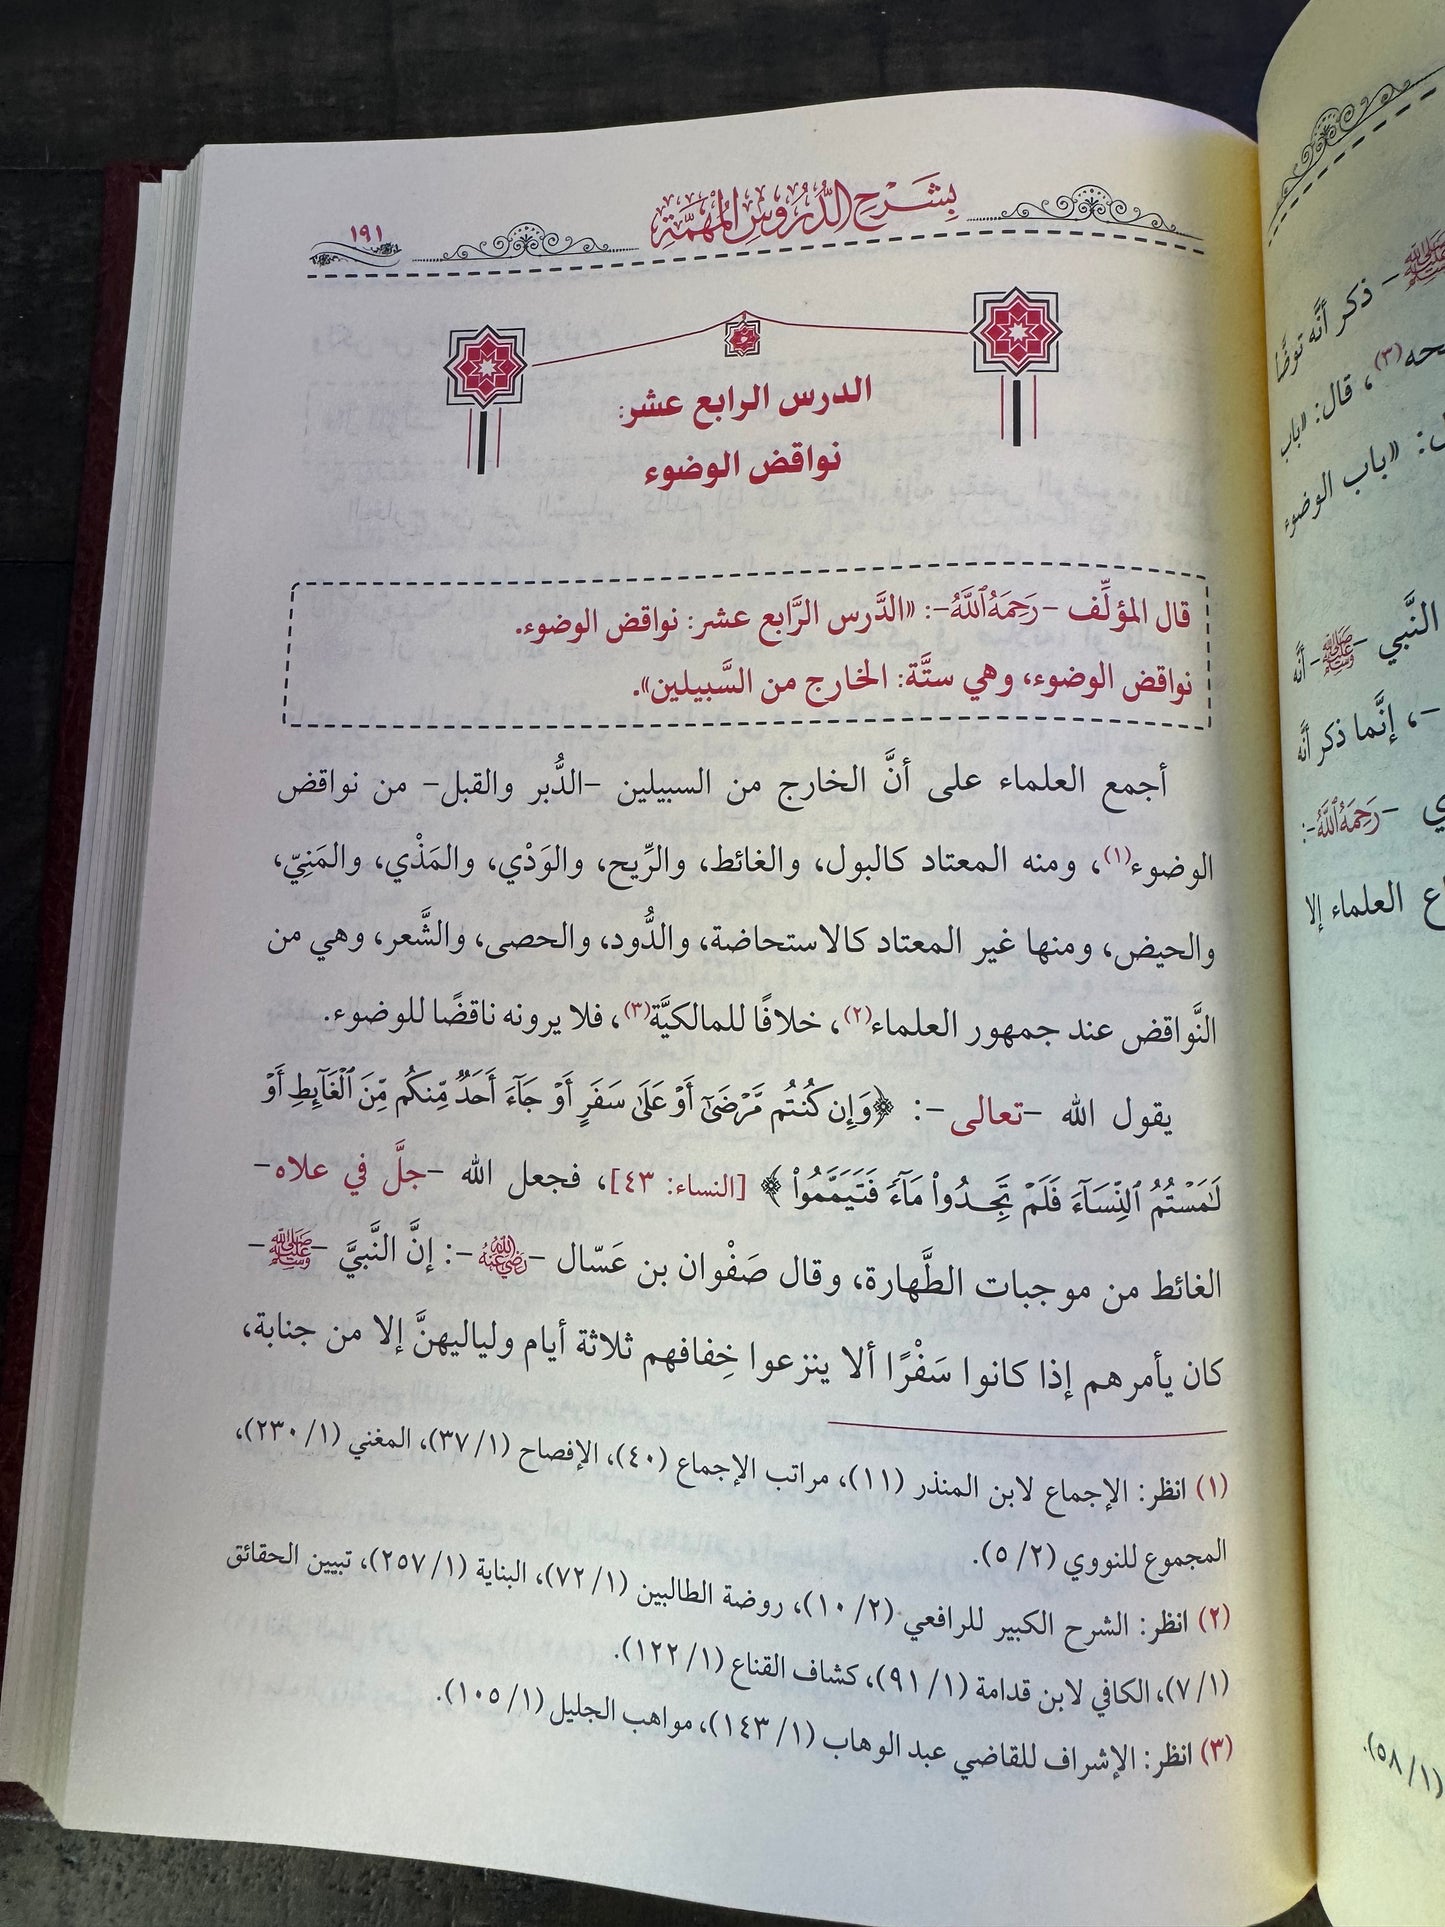 بشرح الدروس المهمة
١٩١
الدرس الرابع عشر:
نواقض الوضوء
قال المؤلِّف -رَحِمَهُ ٱللَّهُ-: «الدَّرس الرَّابع عشر: نواقض الوضوء.
نواقض الوضوء، وهي ستَّة: الخارج من السَّبيلين».
أجمع العلماء على أنَّ الخارج من السبيلين -الدُّبر والقبل- من نواقض
الوضوء(١)، ومنه المعتاد كالبول، والغائط، والرِّيح، والوَدْي، والمَذْي، والمَنِيّ،
والحيض، ومنها غير المعتاد كالاستحاضة، والدُّود، والحصى، والشَّعر، وهي من
النَّواقض عند جمهور العلماء(٢)، خلافًا للمالكيَّة(٣)، فلا يرونه ناقضًا للوضوء.
يقول الله -تعالى-: ﴿وَإِن كُنتُم مَّرْضَىٰٓ أَوْ عَلَىٰ سَفَرٍ أَوْ جَآءَ أَحَدٌ مِّنكُم مِّنَ ٱلْغَآئِطِ أَوْ
لَٰمَسْتُمُ ٱلنِّسَآءَ فَلَمْ تَجِدُوا۟ مَآءً فَتَيَمَّمُوا۟﴾ [النساء: ٤٣]، فجعل الله -جلَّ في علاه-
الغائط من موجبات الطَّهارة، وقال صَفْوان بن عَسّال -رَضِيَ ٱللَّهُ عَنْهُ-: إنَّ النَّبيَّ -صلى الله عليه وسلم-
كان يأمرهم إذا كانوا سَفْرًا ألا ينزعوا خِفافهم ثلاثة أيام ولياليهنَّ إلا من جنابة،
(١) انظر: الإجماع لابن المنذر (١١)، مراتب الإجماع (٤٠)، الإفصاح (١/ ٣٧)، المغني (١/ ٢٣٠)،
المجموع للنووي (٢/ ٥).
(٢) انظر: الشرح الكبير للرافعي (٢/ ١٠)، روضة الطالبين (١/ ٧٢)، البناية (١/ ٢٥٧)، تبيين الحقائق
(١/ ٧)، الكافي لابن قدامة (١/ ٩١)، كشاف القناع (١/ ١٢٢).
(٣) انظر: الإشراف للقاضي عبد الوهاب (١/ ١٤٣)، مواهب الجليل (١/ ١٠٥).
صلى الله عليه وسلم - ذكر أنَّه توضَّأ
(٣)، قال: «باب
: «باب الوضوء
النَّبي -صلى الله عليه وسلم- أنَّه
-، إنَّما ذكر أنَّه
-رَحِمَهُ ٱللَّهُ-:
العلماء إلا
(١/ ٥٨).